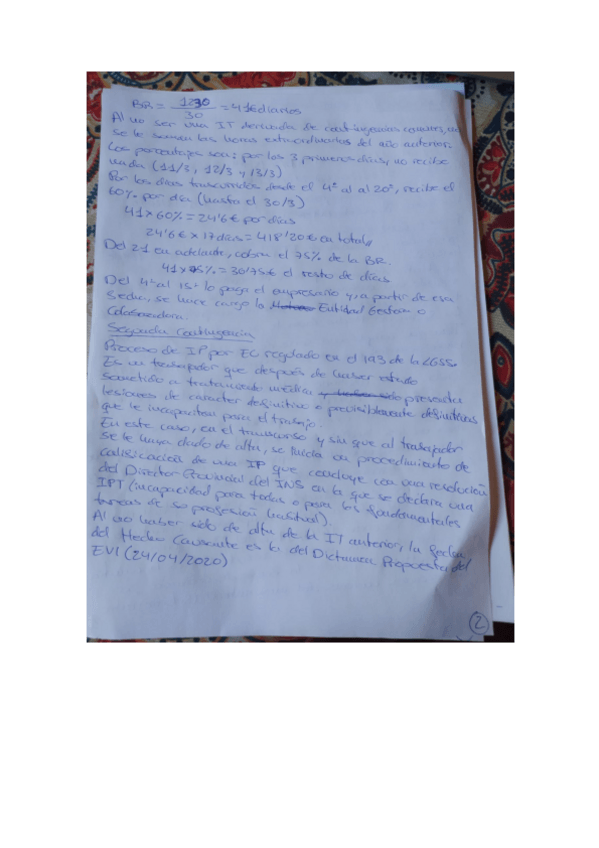 BR = 1230/30 = 41€ diarios
Al no ser una IT derivada de contingencias comunes, no
se le suman las horas extraordinarias del año anterior.
Los porcentajes son: por los 3 primeros días, no recibe
nada (11/3, 12/3 y 13/3)
Por los días transcurridos desde el 4º al al 20º, recibe el
60% por día (hasta el 30/3)
41 x 60% = 24'6€ por días
24'6€ x 17 días = 418'20€ en total
Del 21 en adelante, cobra el 75% de la BR.
41 x 75% = 30'75€ el resto de días
Del 4º al 15º lo paga el empresario y, a partir de esa
fecha, se hace cargo la Entidad Gestora o
Colaboradora.
Segunda Contingencia
Proceso de IP por EC regulado en el 193 de la LGSS.
Es un trabajador que después de haber estado
sometido a tratamiento médico presenta
lesiones de caracter definitivo o previsiblemente definitivas
que le incapaciten para el trabajo.
En este caso, en el transcurso y sin que al trabajador
se le haya dado de alta, se inicia un procedimiento de
calificación de una IP que concluye con una resolución
del Director Provincial del INS en la que se declara una
IPT (incapacidad para todas o para las fundamentales
tareas de su profesión habitual).
Al no haber sido de alta de la IT anterior, la fecha
del Hecho Causante es la del Dictamen Propuesta del
EVI (24/04/2020)
2